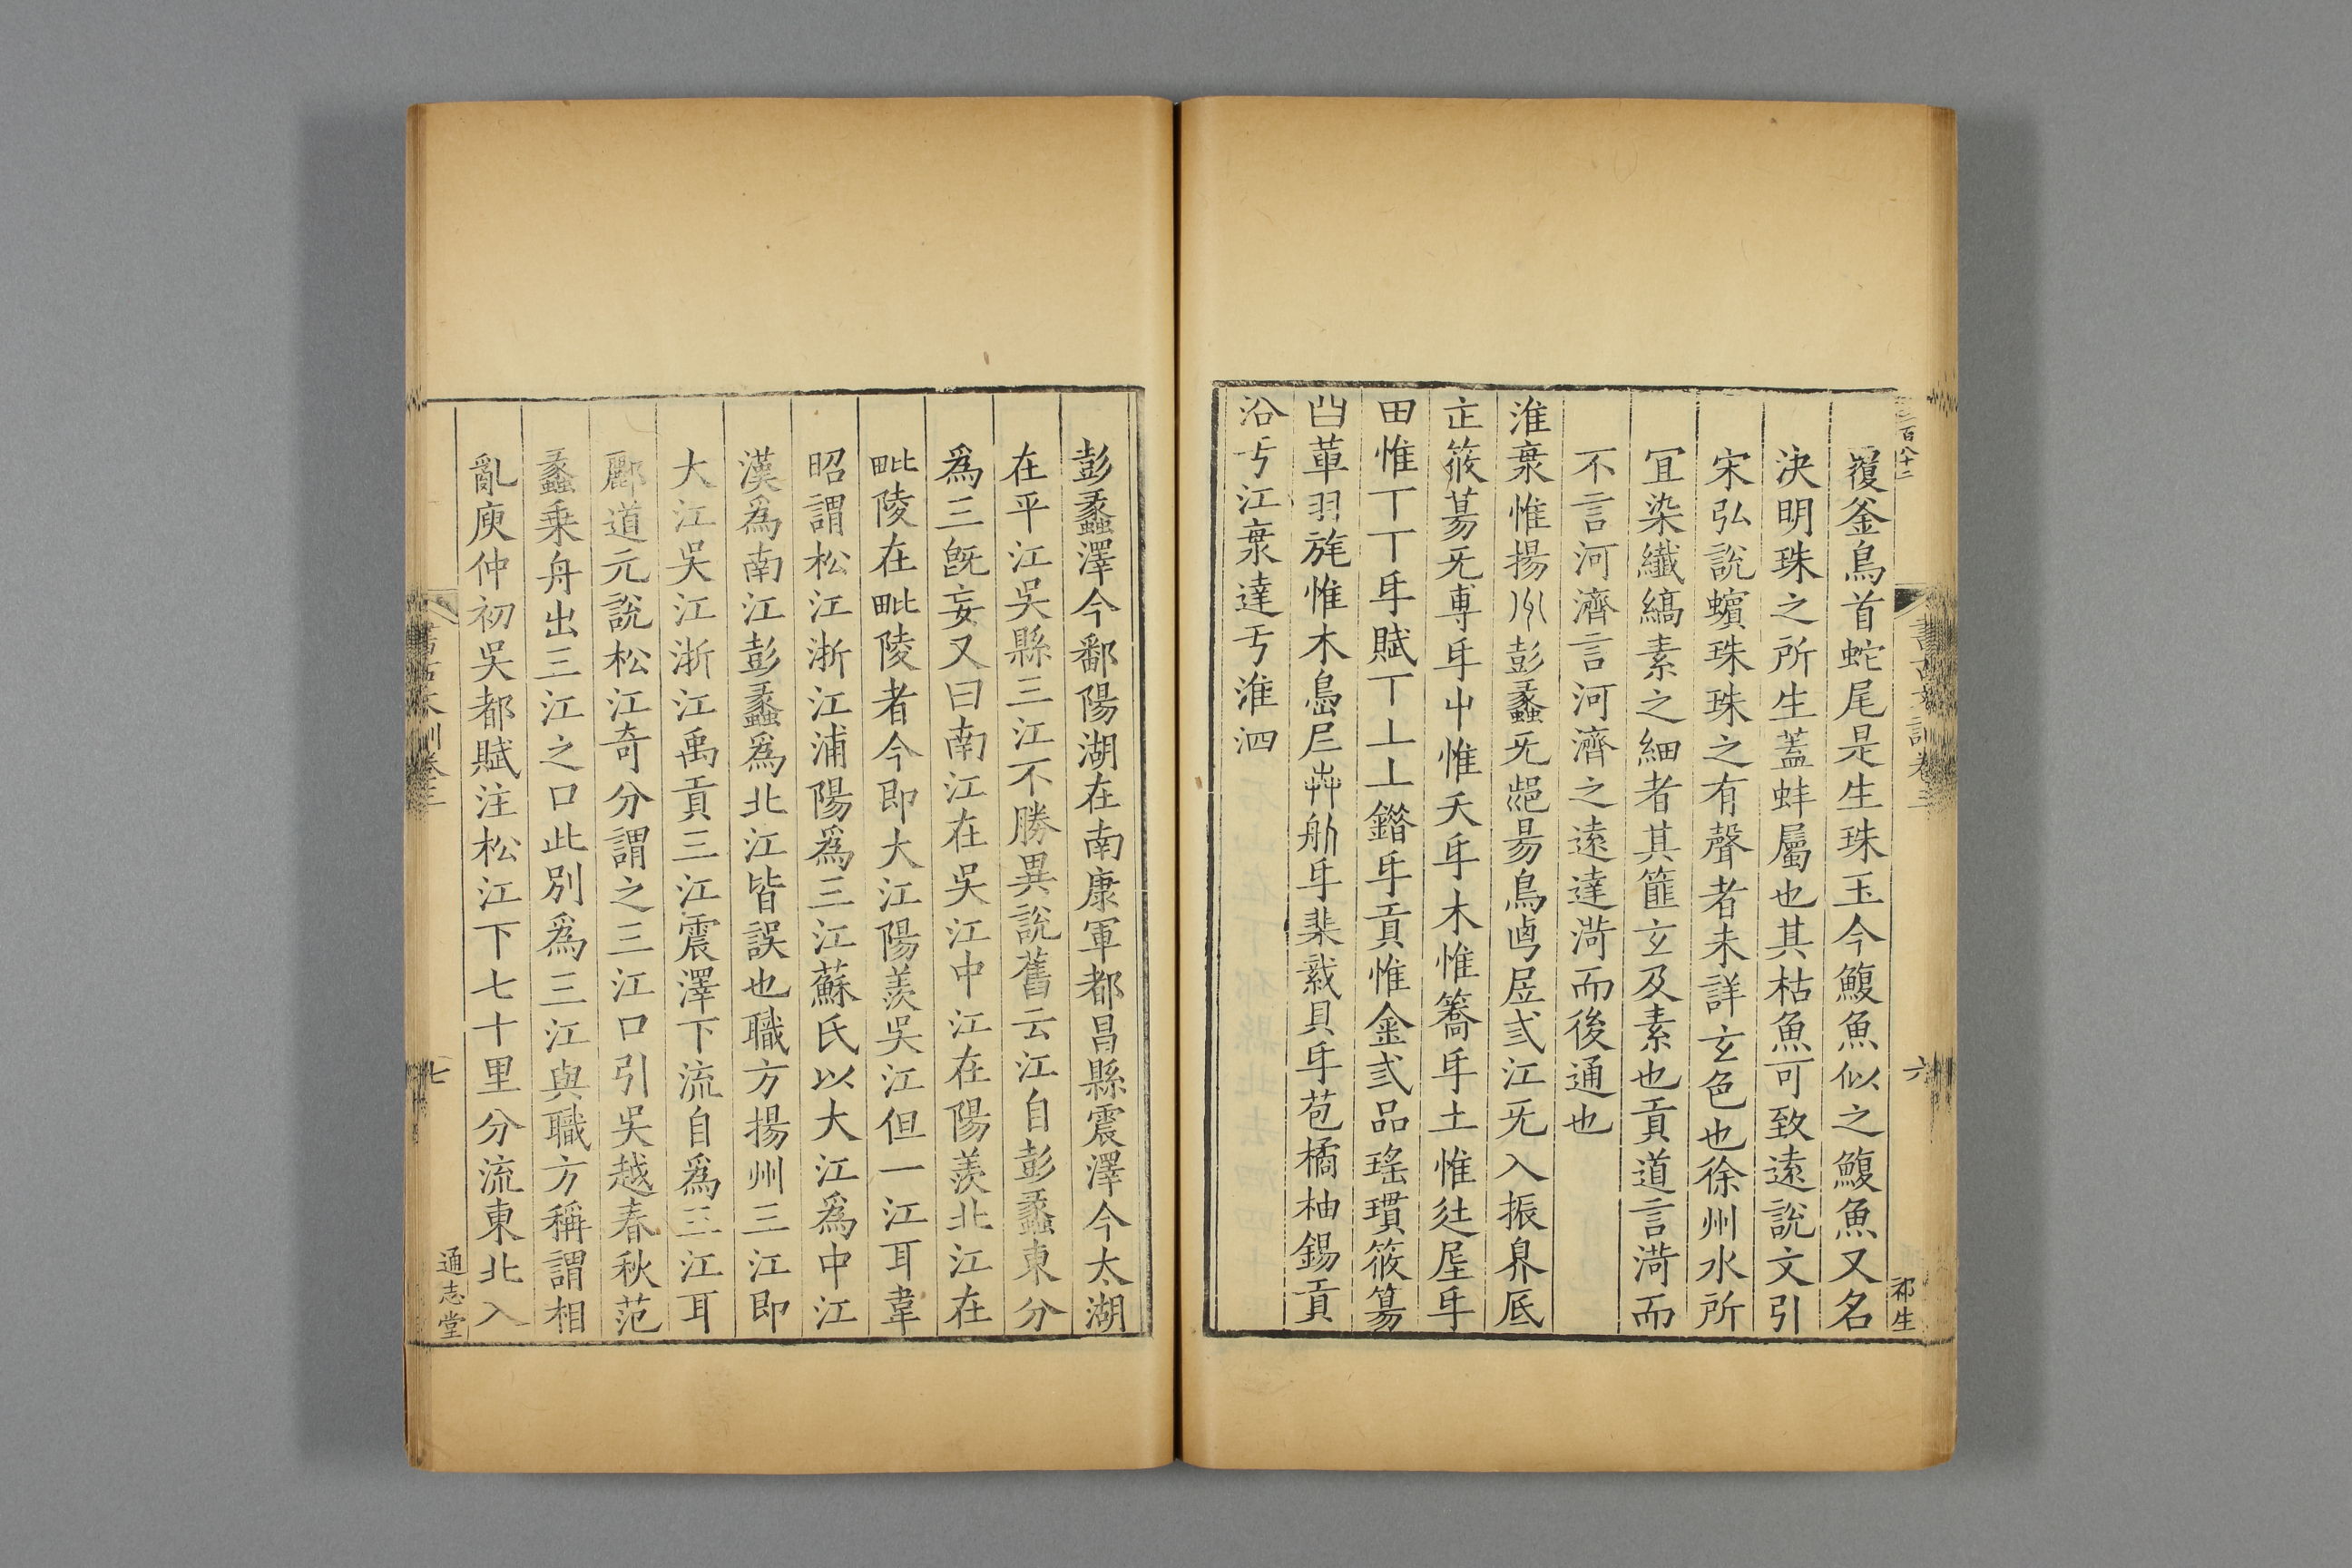 覆釜鳥首蛇尾是生珠玉今鰒魚似之鰒魚又名
決明珠之所生蓋蚌屬也其枯魚可致遠說文引
宋弘說蠙珠珠之有聲者未詳玄色也徐州水所
冝染纖縞素之細者其篚玄及素也貢道言渮而
不言河濟言河濟之遠達渮而後通也
淮衆惟揚彭蠡旡昜鳥屆弎江旡入振底
正筱旡尃惟夭木惟喬土惟
田惟丅丅賦丅丄丄貢惟金弎品瑤瑻筱
齒革羽旄惟木貝苞橘柚錫貢
沿亏江衆達亏淮泗
六
祁生
彭蠡澤今鄱陽湖在南康軍都昌縣震澤今太湖
在平江吳縣三江不勝異說舊云江自彭蠡東分
爲三旣妄又曰南江在吳江中江在陽羨北江在
毗陵在毗陵者今即大江陽羨吳江但一江耳韋
昭謂松江浙江浦陽爲三江蘇氏以大江爲中江
漢爲南江彭蠡爲北江皆誤也職方揚州三江即
大江吳江浙江禹貢三江震澤下流自爲三江耳
酈道元說松江奇分謂之三江口引吳越春秋范
蠡乗舟出三江之口此別爲三江與職方稱謂相
亂庾仲初吳都賦注松江下七十里分流東北入
七
通志堂